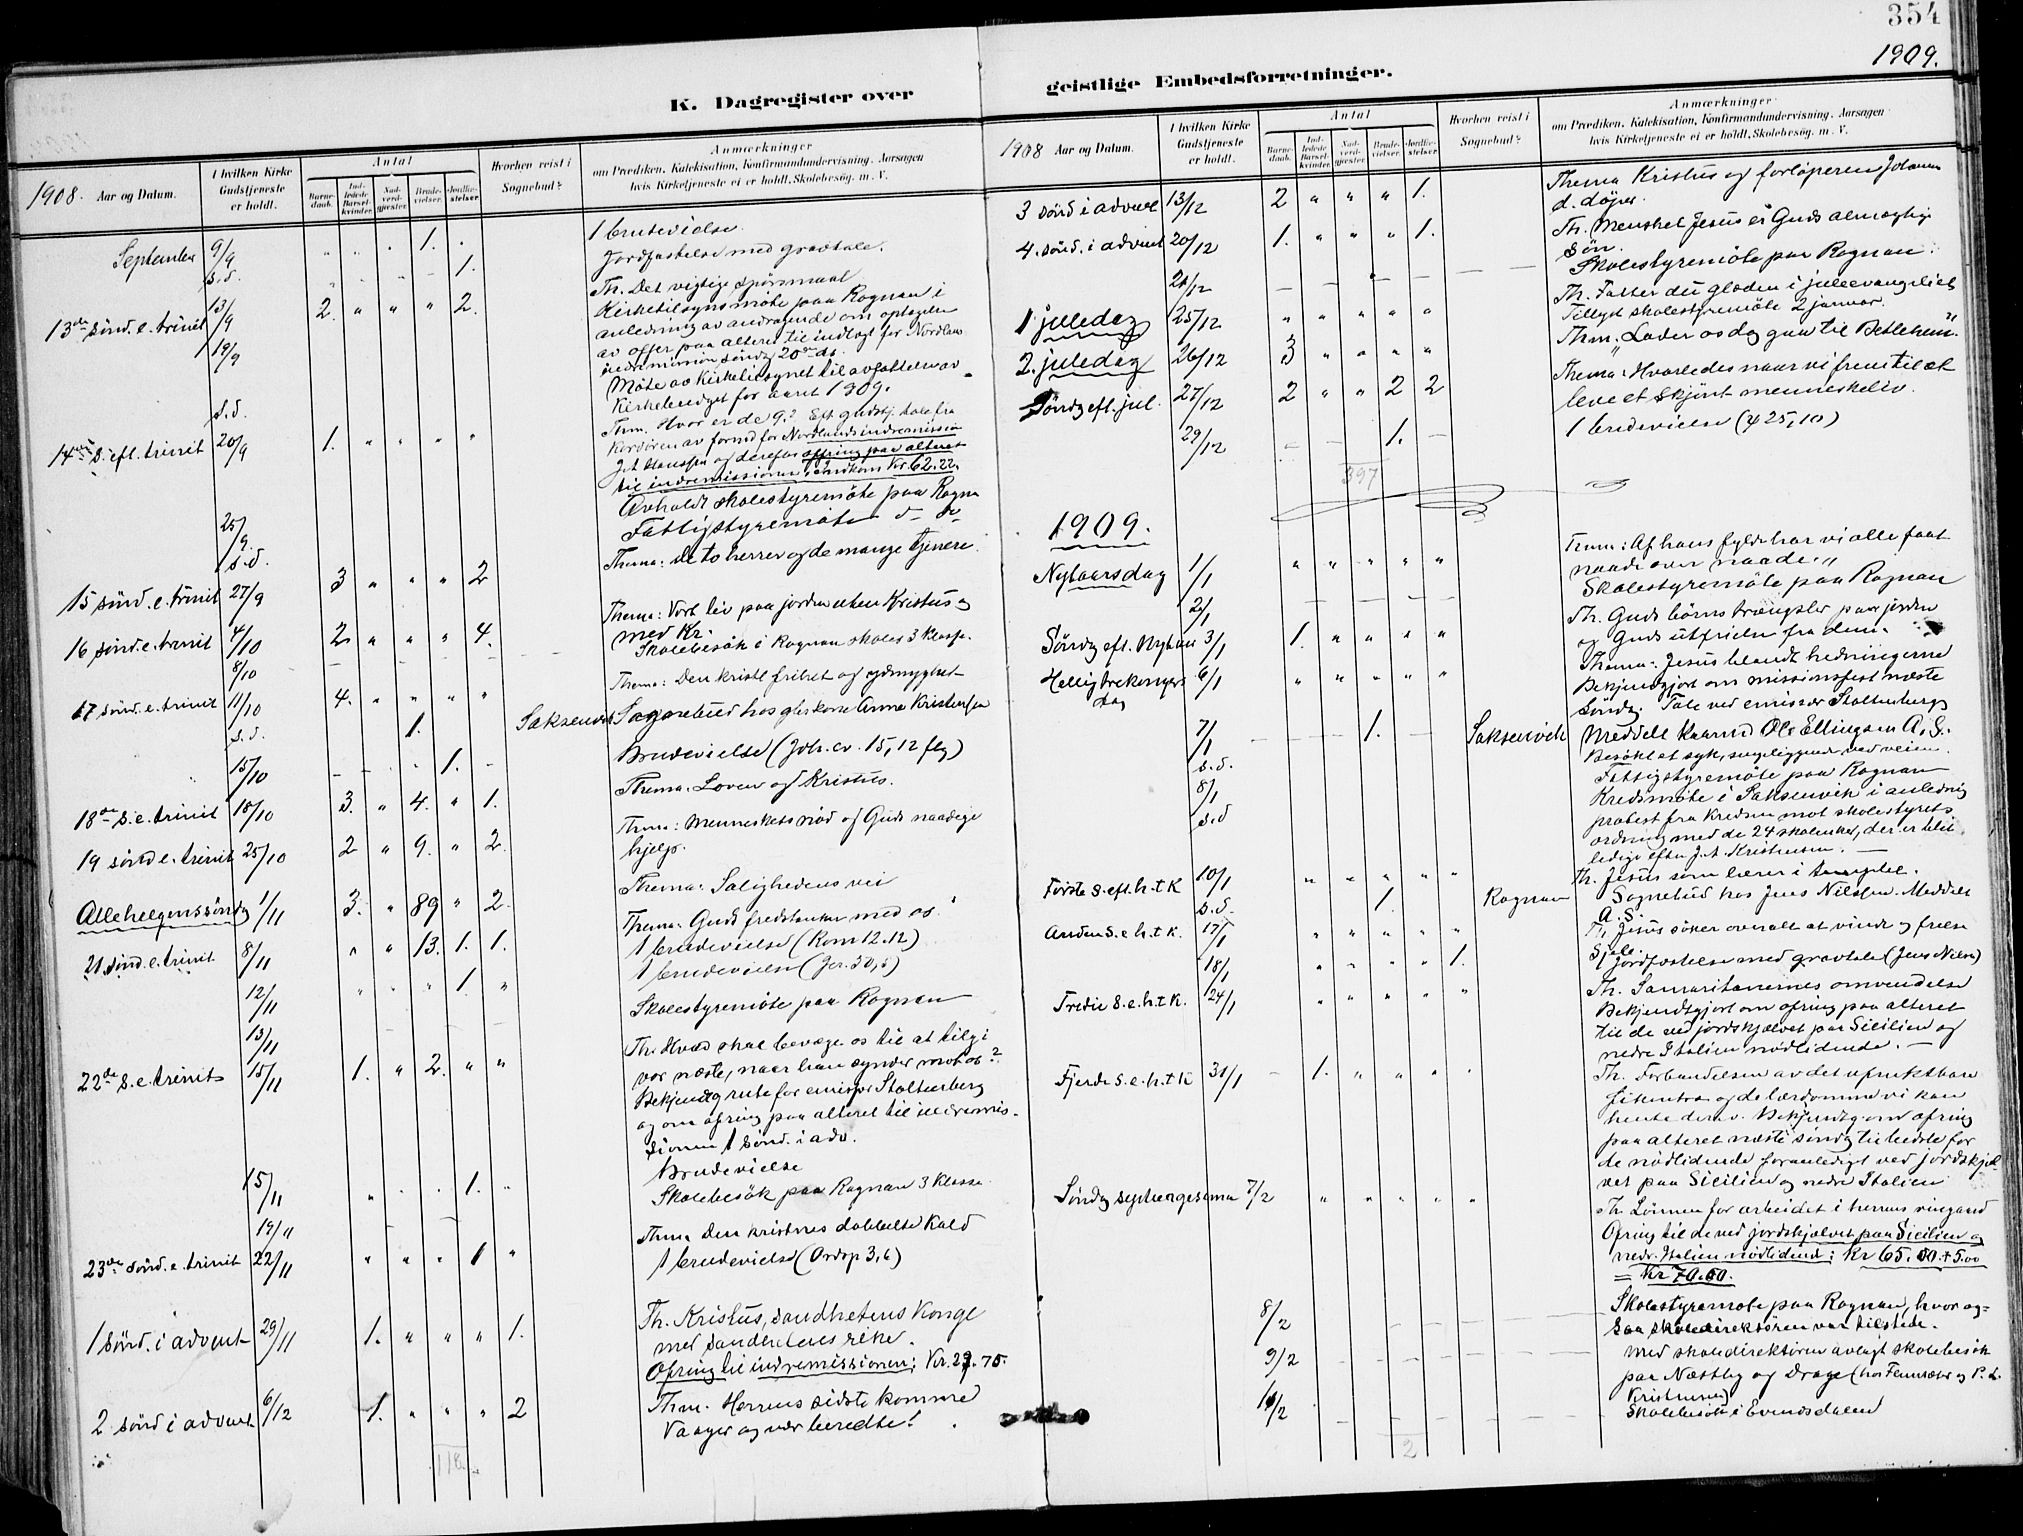 354
1909.
K. Dagregister over
geistlige Embedsforretninger.
1908. Aar og Datum.
I hvilken Kirke Gudstjeneste er holdt.
Antal
Barne-daab.
Ind-ledede Barsel-kvinder.
Nad-verd-gjester.
Brude-vielser.
Jordfæ-stelser.
Hvorhen reist i Sognebud?
Anmærkninger
om Prædiken, Katekisation, Konfirmandundervisning, Aarsagen
hvis Kirketjeneste ei er holdt, Skolebesøg, m. V.
September 9/9 " " . 1. . 1 brudevielse.
s.d. 1. Jordfæstelse med gravtale.
13de sönd. e. trinit 13/9 2. " " " 2. Th. Det vigtige spörsmaal
19/9 Kirketilsynsmöte paa Rognan i
anledning av andragende om optagelse
av offer paa alteret til indtægt for Nordlands
indremission söndag 20de ds.
s.d. Möte av kirketilsynet til avfattelse av
kirkebudget for aaret 1909.
14de s. eft. trinit 20/9 1. " " " " Thm. Hvor er de 9? Eft. gudstj. tale fra
kordören av formd for Nordlands indremission
J. A. Hanssen og derefter ofring paa alteret
til indremissionen, indkom Kr 62.22.
25/9 Avholdt skolestyremöte paa Rognan
s.d. Fattigstyremöte d- do
15 sönd. e. trinit 27/9 3 " " " 2 Thema: De to herrer og de mange tjenere.
16 sönd. e. trinit 4/10 2 " " " 4. Thema: Vort liv paa jorden uten Kristus og
med Kr.
8/10 - - - - - Skolebesök i Rognan skoles 3 klasse.
17 sönd. e. trinit 11/10 4. " " " " Thema: Den kristl frihet og ydmyghet
s.d. 1. Saksenvik Sognebud hos gbrkone Anna Kristensen
15/10 - - - 1. - Brudevielse (Joh. ev. 15, 12 flg)
18de s. e. trinit 18/10 3. " 4. " 1. Thema: Loven og Kristus.
19 sönd e. trinit 25/10 2 " 9. " 2. Thema: Menneskets nöd og Guds naadige
hjelp.
Allehelgenssöndag 1/11 3. " 89 " 2. Thema: Salighedens vei
21 sönd. e. trinit 8/11 " " 13. 1. 1. Thema: Guds fredstanker med os.
1 brudevielse (Rom 12.12)
12/11 " " " 1. " 1 brudevielse (Jer. 30,5)
13/11 Skolestyremöte paa Rognan
22de s. e. trinit 15/11 1. " 2. " " Th. Hvad skal bevæge os til at tilgi
vor næste, naar han synder mot os?
Bekjendtg rute for emissær Stoltenberg
og om ofring paa alteret til indremis-
sionen 1 sönd. i adv.
15/11 " . . 1. " Brudevielse
19/11 - - Skolebesök paa Rognan 3 klasse
23de sönd. e. trinit 22/11 " " " 1 " Thema Den kristnes dobbelte kald
1 brudevielse (Ordsp 3,6)
1 sönd. i advent 29/11 1. " " " 1. Th. Kristus, sandhetens Konge
med sandhetens rike.
Ofring til indremissionen: Kr. 29.75.
2 sönd i advent 6/12 1. " " " 2 Thm. Herrens sidste komme
Vaager og vær beredte!
118.
1908 Aar og Datum.
I hvilken Kirke Gudstjeneste er holdt.
Antal
Barne-daab.
Ind-ledede Barsel-kvinder.
Nad-verd-gjester.
Brude-vielser.
Jordfæ-stelser.
Hvorhen reist i Sognebud?
Anmærkninger
om Prædiken, Katekisation, Konfirmandundervisning, Aarsagen
hvis Kirketjeneste ei er holdt, Skolebesøg, m. V.
3 sönd i advent 13/12 2 " " " 1. Thema Kristus og forlöperen Johannes
d. döper.
4. sönd. i advent 20/12 1. " " " 1. Th. Mennsket Jesus er Guds almægtige
sön.
21/12 - - - - - Skolestyremöte paa Rognan.
1 juledag 25/12 " " " " " Th. Fatter du glæden i juleevangeliet
Tillyst skolestyremöte 2 januar.
2. juledag 26/12 3 " " " " Thm: „Lader os dog gaa til Betlehem."
Söndg eft. jul. 27/12 2 " " 2 2 Thema: Hvorledes naar vi frem til at
leve et skjönt menneskeliv.
29/12 - - 1. - 1 brudevielse (ψ 25,10)
397
1909.
Nytaarsdag 1/1 " " " " " Thm: Af hans fylde har vi alle faat
naade over naade."
2/1 - - - - - Skolestyremöte paa Rognan
Söndg eft. Nytaar 3/1 1. " " " " Th. Guds börns trængsler paa jorden
og Guds utfrielse fra dem.
Hellig trekongers dag 6/1 " " " " " Thema: Jesus blandt hedningerne
Bekjendtgjort om missionsfest næste
söndg. Tale ved emissær Stoltenberg
7/1 - - 1. - - Saksenvik Meddelt kaarmd Ole Ellingsen A. S.
Besökt et syk, sengeliggende ved veien.
s.d. Fattigstyremöte paa Rognan
8/1 Kredsmöte i Saksenvik i anledning
s.d protest fra kredsen mot skolestyrets
ordning med de 24 skoleuker, der er blit
ledige efter J. A. Kristensen.
Förste s. eft. h. t K 10/1 " " " " " Th. Jesus som lærer i templet.
s.d. 1. Rognan Sognebud hos Jens Nilssen. Meddelt
A. S.
Anden s. e. h. t K. 17/1 " " " " " Th. Jesus söker overalt at vinde og frelse
sjæle.
18/1 " " " " 1. Jordfæstelse med gravtale (Jens Nilsen)
Tredie s. e. h. t K. 24/1 " " " " " Th. Samaritanernes omvendelse
Bekjendtgjort om ofring paa alteret
til de ved jordskjælvet paa Sicilien og
nedre Italien nödlidende.
Fjerde s. e. h. t K 31/1 - 1. " " " Th. Forbandelsen av det ufruktbare
fikentræ og de lærdomme vi kan
hente derav. Bekjendtg om ofring
paa alteret næste söndg til bedste for
de nödlidende foranledigt ved jordskjæl-
vet paa Sicilien og nedre Italien
Söndg septuagesima 7/2 " " " " " Th Lönnen for arbeidet i herrens vingaard
Ofring til de ved jordskjælvet paa Sicilien og
nedr. Italien nödlidend: Kr 65.00 + 5.00
= Kr 70.00.
8/2 Skolestyremöte paa Rognan, hvor og-
saa skoledirektören var tilstede.
9/2 Med skoledirektören avlagt skolebesök
paa Næstby og Drage (hos og P. L.
Kristensen)
10/2 Skolebesök i Evensdalen
2